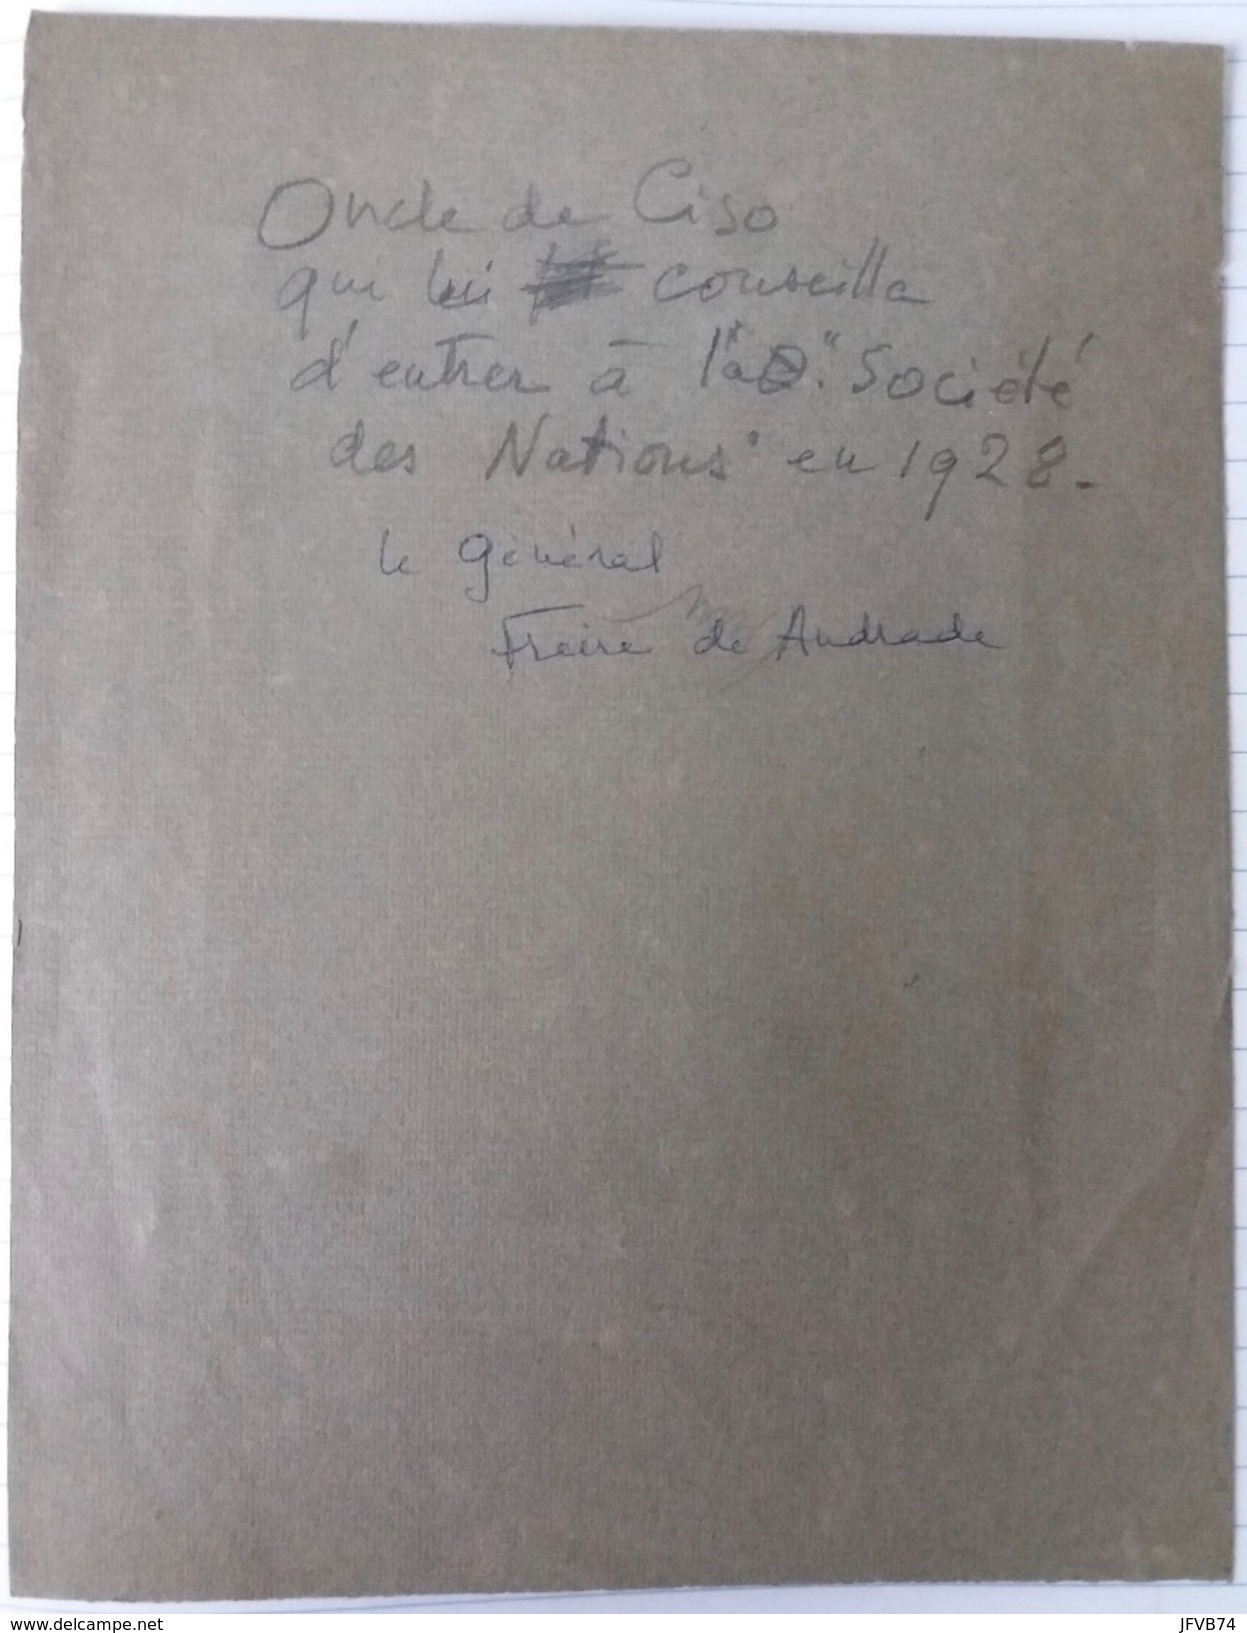 Oncle de Ciso
qui lui conseilla
d'entrer à la "Société
des Nations" en 1928.
le général
Freire de Andrade
delcampe.net
JFVB74